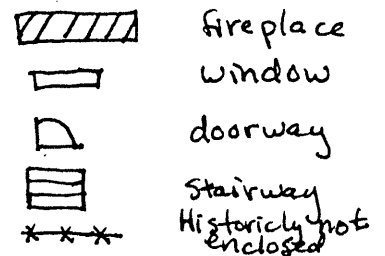 fireplace
window
doorway
Stairway
Historicly not
enclosed